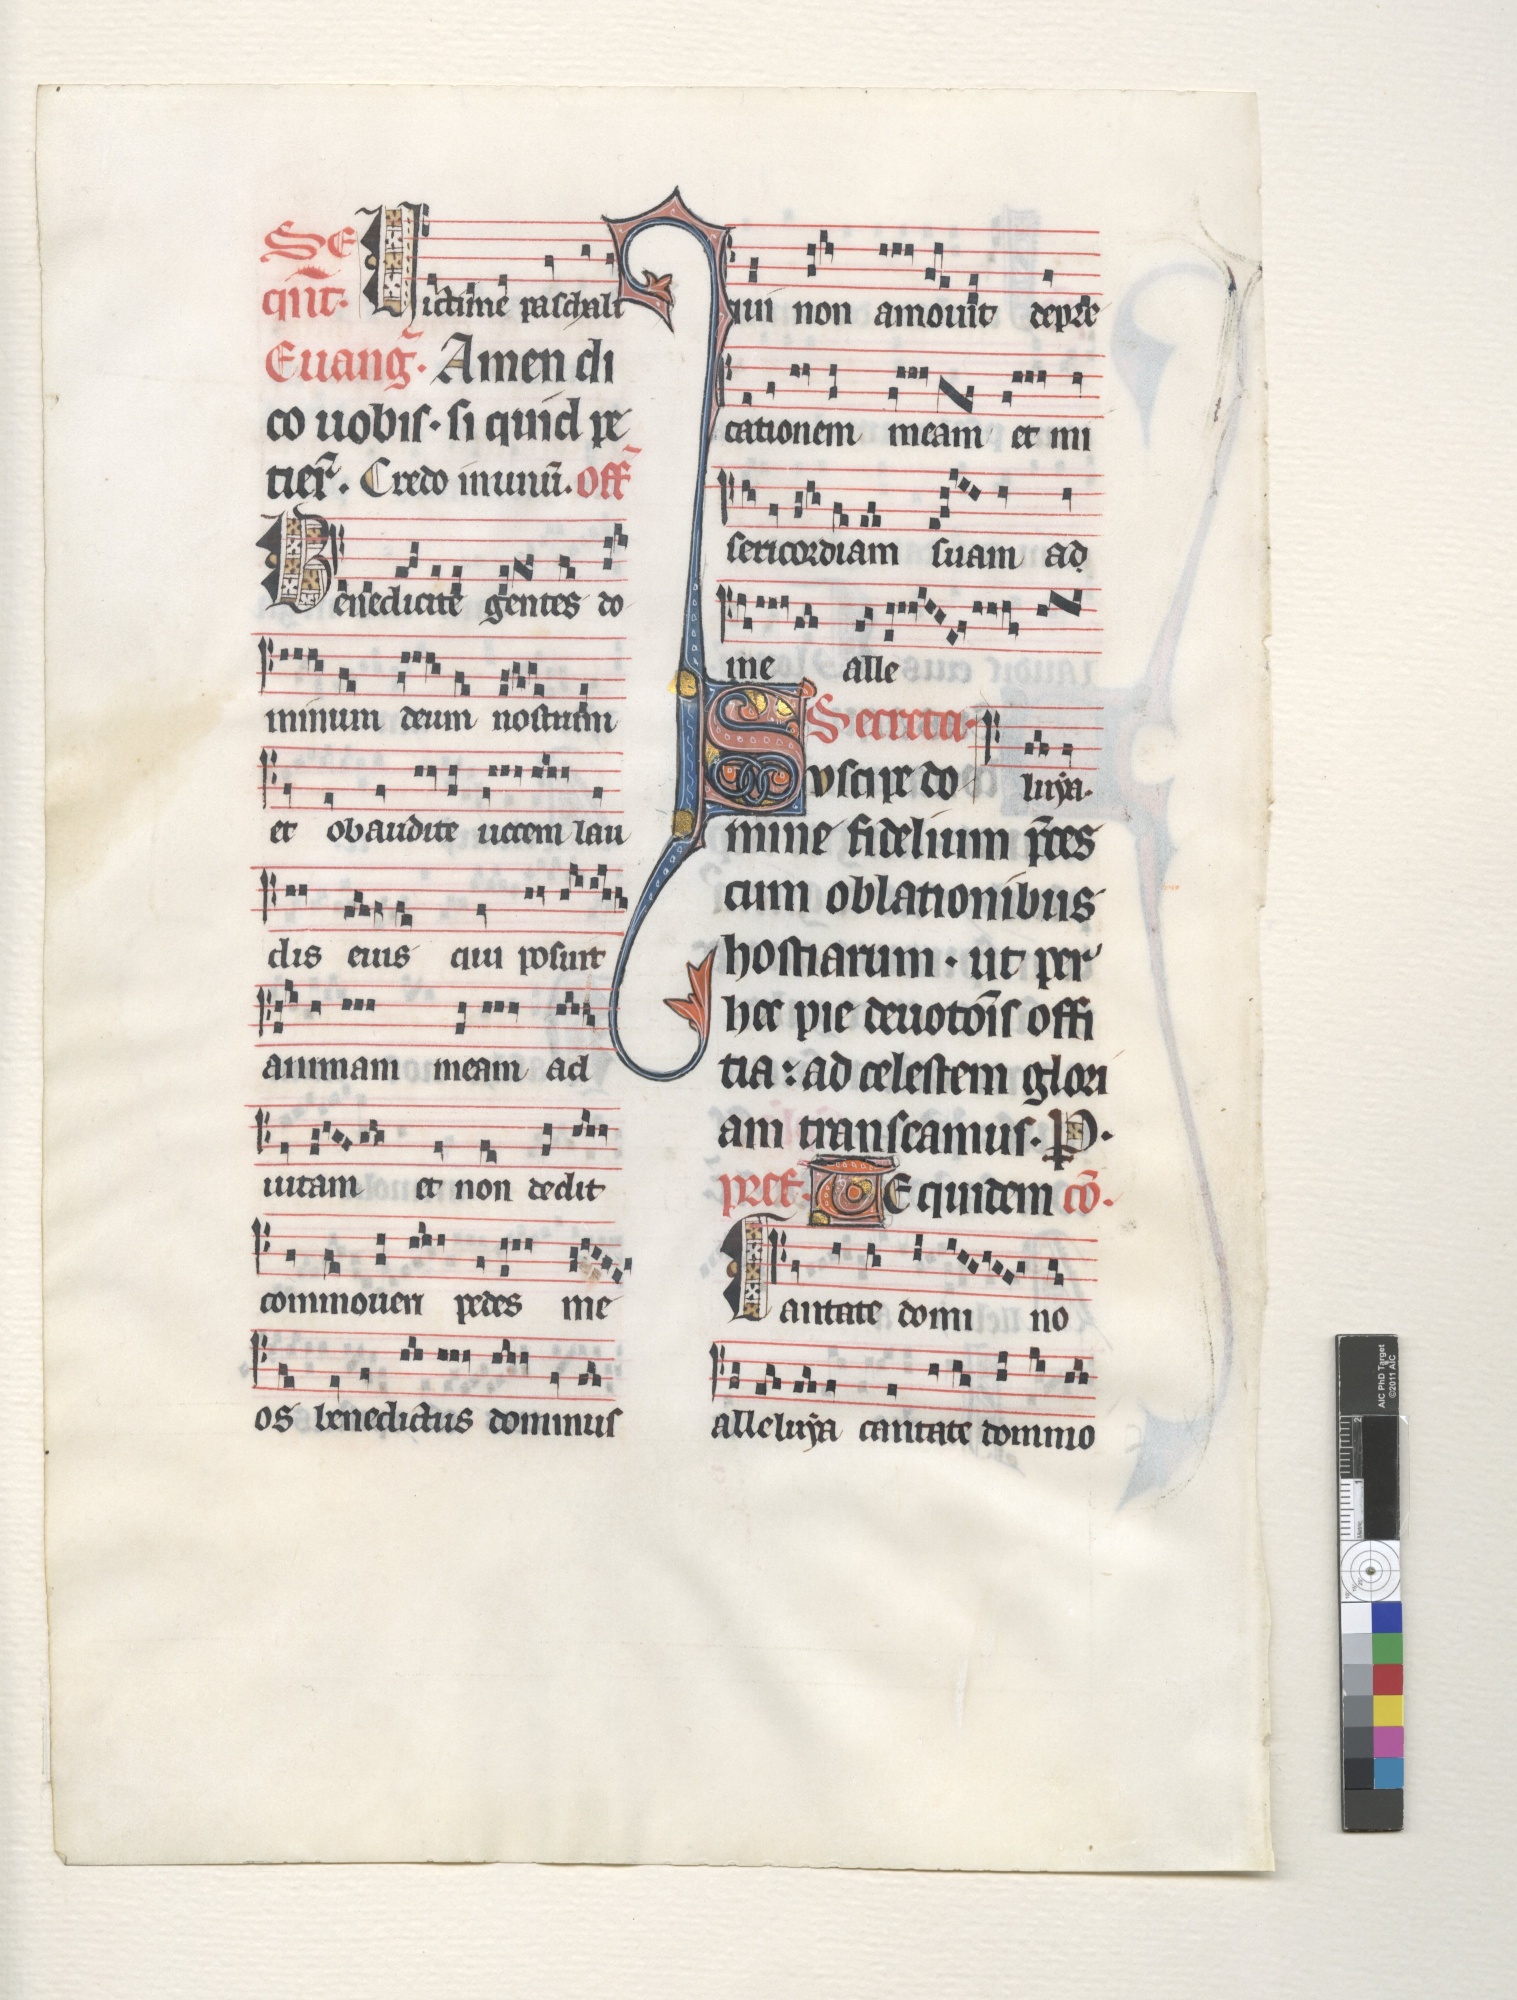 Se
qn̄t. Victime paschali
Euang̃. Amen di
co uobis. si quid pe
tier̃. Credo in unū. Off̃
Benedicite gentes do
minum deum nostrum
et obaudite uocem lau
dis eius qui posuit
animam meam ad
uitam et non dedit
commoueri pedes me
os benedictus dominus
qui non amouit depre
cationem meam et mi
sericordiam suam ad
me alle
Secreta.
Suscipe do luÿa.
mine fidelium p̄ces
cum oblationibus
hostiarum. ut per
hec pie deuotōis offi
tia: ad celestem glori
am transeamus. P.
pref. TE quidem cō.
Cantate domino
alleluÿa cantate domino
AIC PhD Target
©2011 AIC